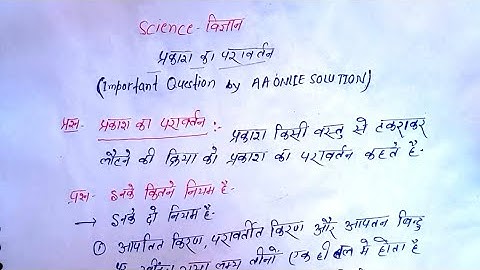 Science-विज्ञान
प्रकाश का परावर्तन
(Important Question by AAONLIE SOLUTION)
प्रश्न- प्रकाश का परावर्तन :- प्रकाश किसी वस्तु से टकराकर
लौटने की क्रिया को प्रकाश का परावर्तन कहते है-
प्रश्न- इनके कितने नियम है-
→ इनके दो नियम है-
① आपतित किरण, परावर्तीत किरण और आपतन बिन्दु
पर खींचा गया लम्ब तीनों एक ही तल मे होता है